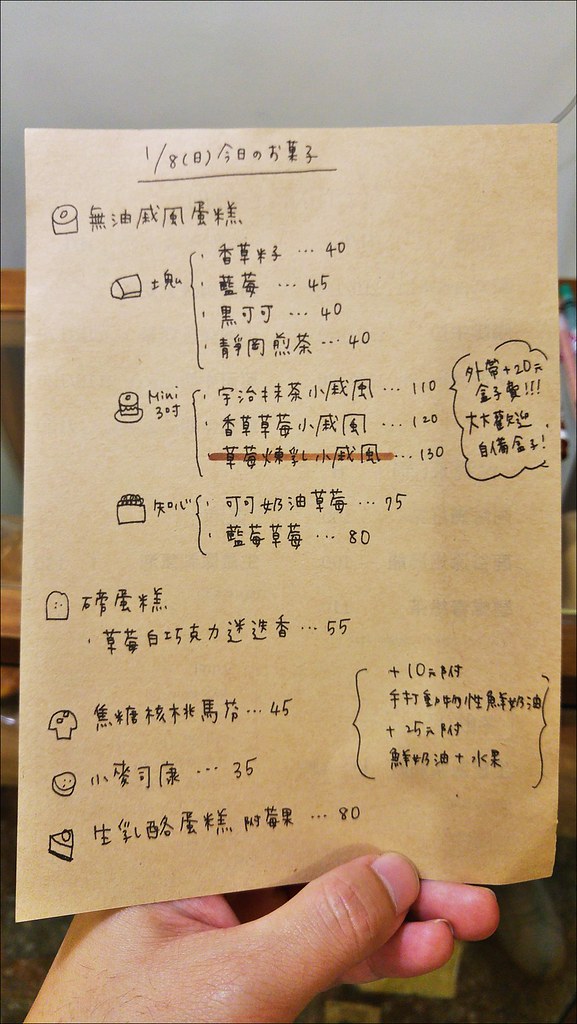 1/8(日)今日のお菓子
無油戚風蛋糕
土塊
·香草籽子 ... 40
·藍莓 ... 45
·黑可可 ... 40
·靜岡煎茶 ... 40
Mini
3吋
·宇治抹茶小戚風 ... 110
·香草草莓小戚風 ... 120
·草莓煉乳小戚風 ... 130
外帶+20元
盒子費!!!
大大歡迎
自備盒子!
知心
·可可奶油草莓 ... 75
·藍莓草莓 ... 80
磅蛋糕
·草莓白巧克力迷迭香 ... 55
焦糖核桃馬芬 ... 45
小麥司康 ... 35
生乳酪蛋糕 附莓果 ... 80
+10元附
手打動物性鮮奶油
+25元附
鮮奶油+水果